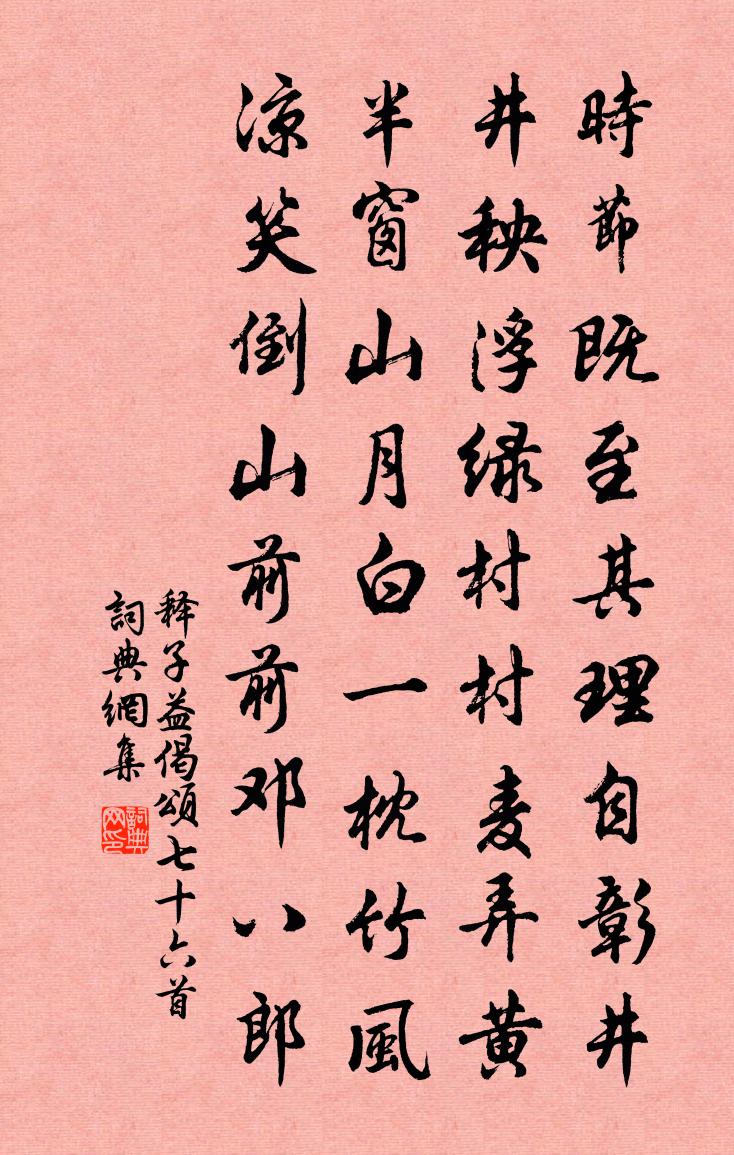 時節既至其理自彰井
井秧浮绿村村麦弄黄
半窗山月白一枕竹風
凉笑倒山前前邓八郎
释子益偈頌七十六首
詞典網集
詞典网印